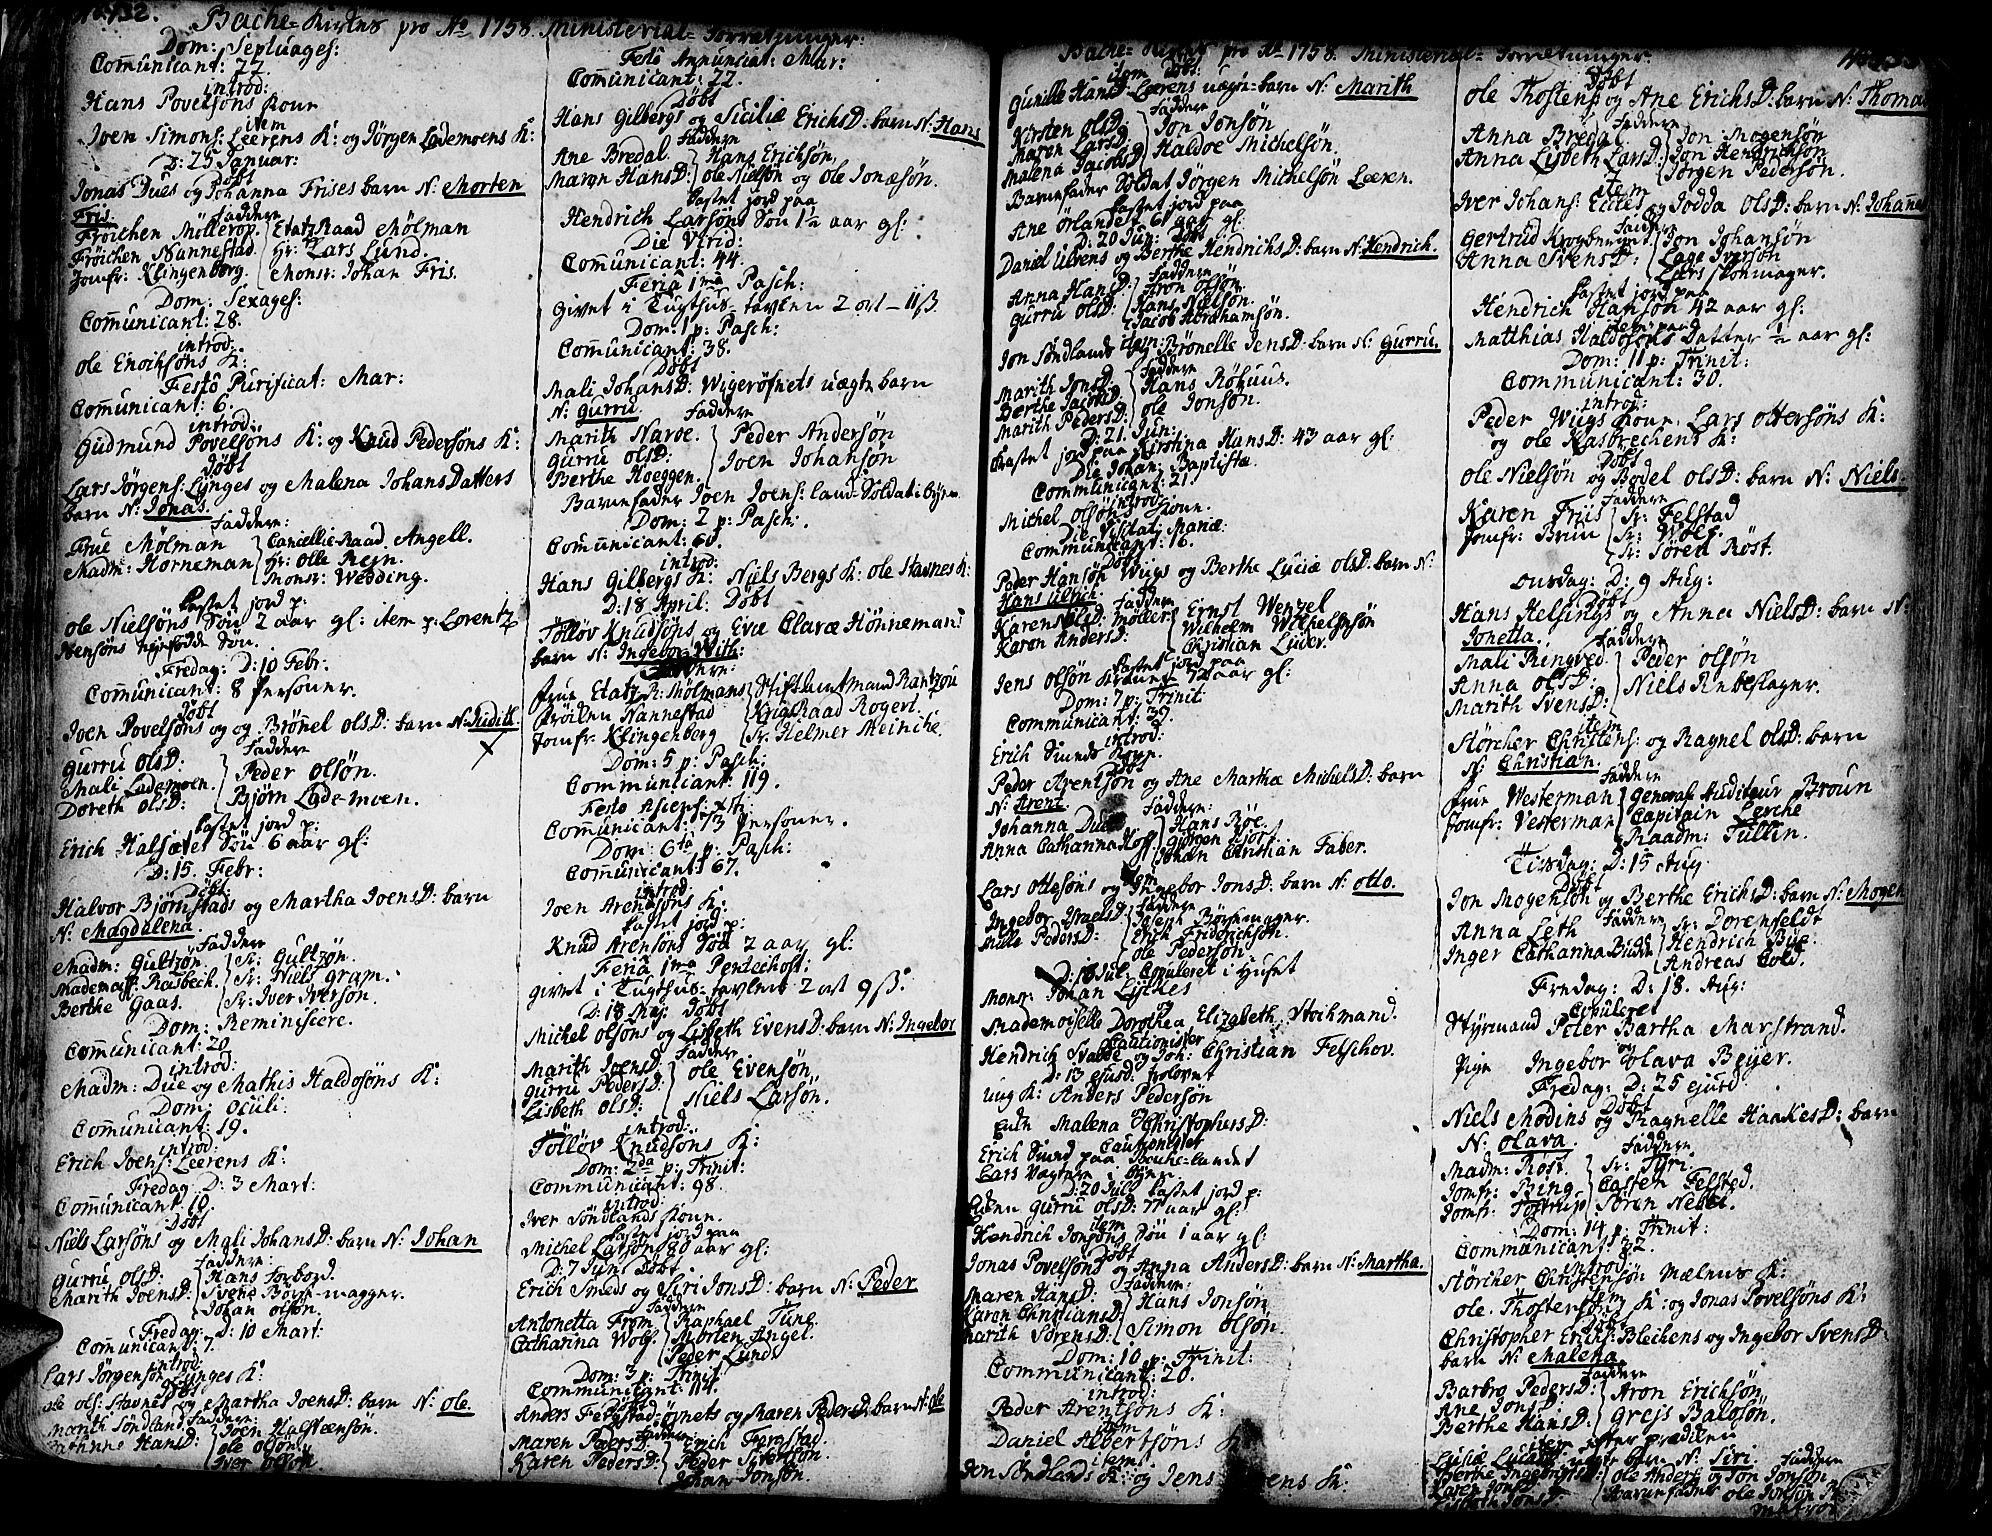 Bache-Kirkes pro Ao 1758. Ministerial-Forretninger:
Dom: Septuages:
Communicant: 77.
introd:
Hans Povelsøns Kone
item
Joen Simons: Leerens K: og Jørgen Lademoens K:
D: 25 Januar:
Døbt
Jonas Dues og Johanna Frises barn N: Morten
Fris.
Faddere
Frøichen Møllerop. Etatz Raad Mølman
Frøichen Nannestad. Hr: Lars Lund.
Jomfr: Klingenberg. Monsr: Johan Fris.
Dom: Sexages:
Communicant: 28.
introd:
Ole Erichsøns K:
Festô Purificat: Mar:
Communicant: 6.
introd:
Gudmund Povelsøns K: og Knud Pedersøns K:
Døbt
Lars Jørgens: Lynges og Malena Johans Datters
barn N: Jonas.
Faddere:
Frue Mølman Cancellie-Raad Angell.
Madm: Horneman Hr: Olle Rejn.
Monsr: Wedding.
kastet jord p:
Ole Nielsøns Søn 2 aar gl: item p: Lorentz
Jensøns nyefødde Søn.
Fredag: D: 10 Febr:
Communicant: 8 Personer.
Døbt
Joen Povelsøns og og Brønel OlsD: barn N: Judith.
Faddere
Gurru OlsD:
Mali Lademoen. Peder Olsøn.
Doreth OlsD: Bjørn Lade-moen.
kastet jord p:
Erich Halsætet Søn 6 aar gl:
D: 15. Febr:
Døbt
Halvor Bjørnstads og Martha JoensD: barn
N: Magdalena.
Faddere
Madm: Gultzøn. Sr: Gultzøn.
Mademois: Raisbech. Sr: Niels Gram.
Berthe Gaas. Sr: Iver Iverson.
Dom: Reminiscere.
Communicant: 20
introd:
Madm: Due og Mathis Haldosøns K:
Dom: Oculi:
Communicant: 19.
introd:
Erich Joens: Leerens K:
Fredag D: 3 Mart:
Communicant: 10.
Døbt
Niels Larsøns og Mali JohansD: barn N: Johan
Faddere:
Gurru OlsD: Hans Forbord.
Marith JoensD: Svend Børsk-magger.
Johan Olsøn.
Fredag: D: 10 Mart:
Communicant: 7.
introd:
Lars Jørgensøn Lynges K:
Døbt
Ole Ols: Stavnes og Martha JoensD: barn N: Ole.
Faddere:
Marith Søndland Joen Halsteensøn.
Cathrine HansD: Ole Olsøn.
Iver Olsøn
Festo Annunciat: Mar:
Communicant: 77.
Døbt
Hans Gilbergs og Siciliæ ErichsD: barn N: Hans
Faddere
Ane Bredal. Hans Erichsøn,
Maren HansD: Ole Nielsøn og Ole Jonæsøn.
kastet jord paa
Hendrich Larsøns Søn 1½ aar gl:
Die Virid:
Communicant: 44.
Feria 1ma Pasch:
givet i Tugthus-tavlen 2 ort - 11ß.
Dom: 1 p: Pasch:
Communicant: 38.
Døbt
Mali JohansD: Wigerøfnets uægte barn
N: Gurru. Faddere
Marith Narve. Peder Andersøn
Gurru OlsD: Joen Johansøn
Berthe Hoeggen.
Barnefader Joen Joens: land-Soldat i byen
Dom: 2 p: Pasch:.
Communicant: 60.
introd:
Hans Gilbergs K: Niels Bergs K: Ole Stavnes K:
D: 18 April: Døbt
Tølløv Knudsøns og Eva Claræ Hønneman:
barn N: Ingebor With:
Faddere:
frue Etatz R: Mølmans Stiftamtmand Rantzou
Frøiken Nannestad Krigs Raad Rogert.
Jomfr: Klingenberg Sr: Helmer Meinche.
Dom: 5 p: Pasch:
Communicant: 119.
Festo Ascens: Xsti:
Communicant: 73 Personer.
Dom: 6ta p: Pasch:
Communicant: 67.
introd:
Joen Arensøns K:
kastet jord p:
Knud Arensøns Søn 2 aar gl:
Feria 1ma Pentechost:
givet i Tugthus-tavlen 2 ort 9ß:
D: 18 Maj: Døbt
Michel Olsøns og Lisbeth EvensD: barn N: Ingebor
Faddere
Marith JoensD: Ole Evensøn,
Gurru PedersD: Niels Larsøn.
Lisbeth OlsD:
introd:
Tølløv Knudsøns K:
Dom: 2da p: Trinit:
Communicant: 98.
introd:
Iver Søndlands Kone.
kastet jord paa
Michel Larsøn 80 aar gl:
D: 7 Jun: Døbt
Erich Smeds og Siri JonsD: barn N: Peder
Faddere
Antonetta From Raphael Tung.
Catharina Wolf. Morten Angel.
Peder Lund.
Dom: 3 p: Trinit:
Communicant: 114.
Døbt
Anders Fergstad-øgnets og Maren PedersD: barn N: Ole
Faddere
Maren PedersD: Erich Fergstad.
Karen PedersD: Peder Sivensøn.
Johan Jonsøn.
Bache-Kirkes pro Ao 1758. Ministerial-Forretninger.
item Døbt
Gunille HansD: Leerens uægte-barn N: Marith
Faddere
Kirsten OlsD: Jon Jonsøn
Maren LarsD: Haldoe Michelsøn.
Malena JacobsD:
Barnefader Soldat Jørgen Michelsøn Leeren.
kastet jord paa
Ane Ørlandet 61 aar gl:
D: 20 Jun: Døbt
Daniel Ulvens og Berthe HendrichsD: barn N: Hendrich.
Faddere
Anna HansD: Aron Olsøn.
Gurru OlsD: Hans Nielsøn.
Jacob Abrahamsøn.
item:
Jon Søndlands og Brønelle JensD: barn N: Gurru.
Faddere
Marith JonsD: Hans Røhuus.
Berthe JacobsD: Ole Jonsøn.
Marith PedersD:
D: 21 Jun:
kastet jord paa Kirstina HansD: 43 aar gl:
Die Johan: Baptistæ.
Communicant: 21.
introd:
Michel Olsøns Kone.
Die Visitat: Mariæ:
Communicant: 16.
Døbt
Peder Hansøn Wigs og Berthe Luciæ OlsD: barn N:
Hans Ulrich.
Faddere
Karen Møller Ernst Wenzel
Karen AndersD: Wilhelm Wilhelmsøn
Christian Lüder.
kastet jord paa
Jens Olsøn 72 aar gl:
Dom: 7 p: Trinit:
Communicant: 39.
introd:
Erich Smeds Kone.
Døbt
Peder Arentsøn og Ane Marthæ MichelsD: barn
N: Arent
Faddere:
Johanna Due Hans Røe.
Anna Catharina Hoff. Gjørgen Hjort
Johan Christian Faber.
item
Lars Ottesøns og Ingebor JonsD: barn N: Otto.
Faddere
Ingebor IsraelsD: Joseph Børstmager.
Niels PedersD: Erich Friderichsøn.
Ole Pedersøn.
D: Jul: Copuleret i Huset
Monsr: Johan Lyckes
og
Mademoiselle Dorothea Elizabeth Stockmand.
Cautionister
Hendrich Svabbe og Joh: Christian Felschov.
D: 13 ejusd. trolovet
ung K: Anders Pedersøn
og
Malena ChristophersD:
Cautionister
Erich Svend paa Bache-landet
Lars Vægtere i byen
D: 20 Julii kastet jord p:
Gurru OlsD: 77 aar gl:
item
Hendrich Jonsøns Søn 1 aar gl:
Døbt
Jonas Povelsøns og Anna AndersD: barn N: Martha.
Faddere:
Maren HansD: Hans Jonsøn
Karen ChristiansD: Simon Olsøn.
Marith SørensD:
Dom: 10 p: Trinit:
Communicant: 20.
introd:
Peder Arentsøns K:
item
Daniel Albertsøns K:
item
Jon Søndlands K: og Jens K:
Døbt
Ole Thostens og Ane ErichsD: barn N: Thomas
Faddere
Anna Bredal. Jon Mogensøn
Anna Lisbeth LarsD: Jon Hendrichsøn
Jørgen Pedersøn.
item
Iver Johans: Eccles og Jodda OlsD: barn N: Johannes
Faddere
Gertrud Jon Johansøn
Anna SvensD: Lage Iversøn
Lars Skomager.
kastet jord paa
Hendrich Hansøn 42 aar gl:
item paa
Matthias Haldosøns Datter ½ aar gl:
Dom: 11 p: Trinit:
Communicant: 30.
introd:
Peder Wigs Kone, Lars Ottersøns K:
og Ole Hasbrechens K:
Døbt
Ole Nielsøn og Bodel OlsD: barn N: Niels.
Faddere
Karen Friis Sr: Felstad
Jomfr: Brun Sr: Wolf.
Sr: Søren Røst.
Onsdag: D: 9 Aug:
Døbt
Hans Helsings og Anna NielsD: barn N:
Jonetta.
Faddere
Mali Ringved. Peder Olsøn
Anna OlsD: Niels Anbeslager.
Marith SvensD:
item
Størcher Christens: og Ragnel OlsD: barn
N: Christian.
Faddere
frue Westerman General Auditeur Broun
Jomfr: Vesterman Capitain Lerche
Raadm: Tullin.
Tisdag: D: 15 Aug
Døbt
Jon Mogensøn og Berthe ErichsD: barn N: Mogen
Faddere
Anna Leth Sr: Dorenfeldt
Inger Catharina Budde Hendrich Bye.
Andreas Cold.
Fredag: D: 18. Aug:
Copuleret
Styrmand Peter Bartha Marstrand.
og
Pige Ingebor Olava Beyer.
Fredag: D: 25 ejusd
Døbt
Niels Modins og Ragnelle HaakesD: barn
N: Olava.
Faddere
Madm: Røst. Sr: Tyri.
Jomfr: Bing Casten Felsted.
Jomfr: Fostrup Søren Nebel.
Dom: 14 p: Trinit:
Communicant: 32.
introd:
Størcher Christensøn Mælnes K:
item
Ole Thostensøns K: og Jonas Povelsøns K:
Døbt
Christopher Erichs: Blechens og Ingebor SvensD:
barn N: Malena.
Faddere
Barbro PedersD: Aron Erichsøn,
Ane JonsD: Grejs Balosøn,
Berthe HansD:
item efter prædiken
uægte barn N: Siri Faddere
Berthe IngebrigtsD: Ole Anders: og Jon Jonsøn
Karen JonsD: Barnefader Ole Jonsøn